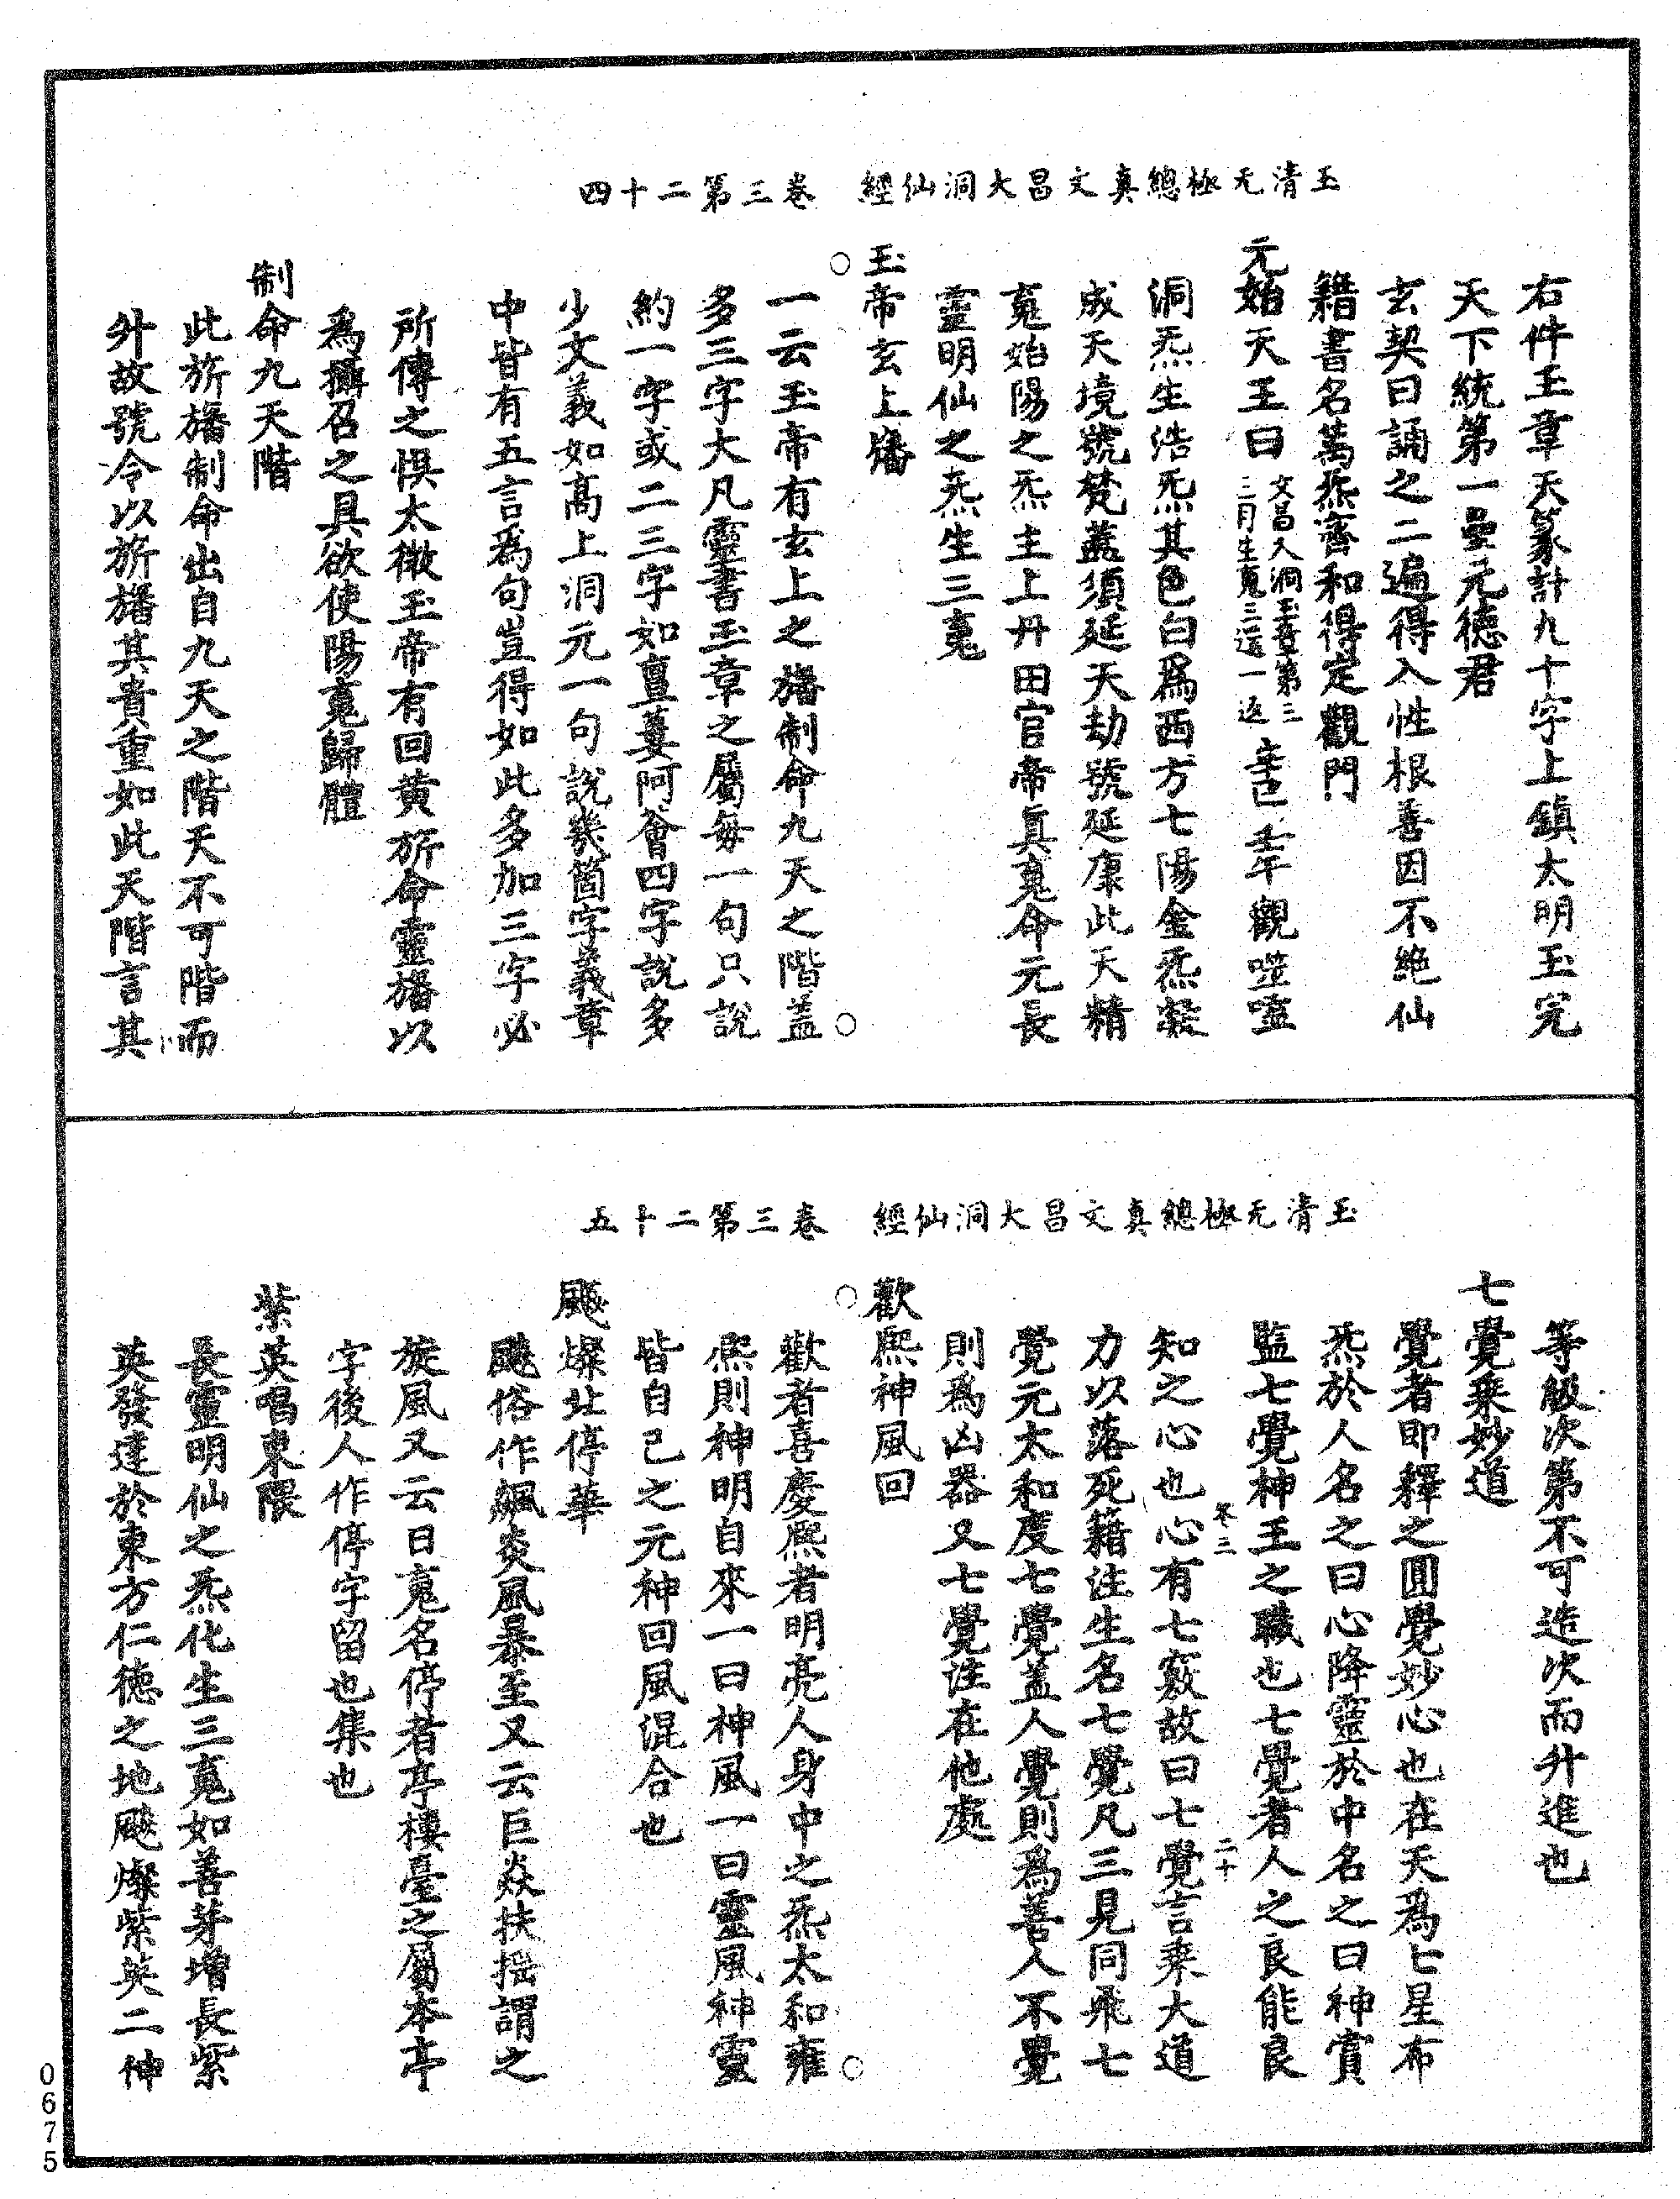 玉清无極總真文昌大洞仙經　卷三第二十四
右件玉章天篆計九十字上鎮太明玉完
天下統第一曐元德君
玄契曰誦之二遍得入性根善因不絶仙
籍書名萬炁濟和得定觀門
元始天王曰文昌入洞玉章第三二月生䰟三還一返辛巳壬午觀
洞炁生浩炁其色白爲西方七陽金炁凝
成天境號梵蓋須延天劫號延康此天精
䰟始陽之炁主上丹田官帝真䰟命元長
靈明仙之炁生三䰟
玉帝玄上旛
一云玉帝有玄上之旛制命九天之階蓋
多三字大凡靈書玉章之屬每一句只說
約一字或二三字如亶婁阿會四字說多
少文義如高上洞元一句說㡬箇字義章
中皆有五言爲句豈得如此多加三字必
所傳之悮太微玉帝有回黄旂命靈旛以
爲攝召之具欲使陽䰟歸體
制命九天階
此旂旛制命出自九天之階天不可階而
升故號令以旂旛其貴重如此天階言其
玉清无極總真文昌大洞仙經　卷三第二十五
等級次第不可造次而升進也
七覺乘妙道
覺者即釋之圓覺妙心也在天爲七星布
炁於人名之曰心降靈於中名之曰神賞
監七覺神王之職也七覺者人之良能良
卷三　二十
知之心也心有七竅故曰七覺言乘大道
力以落死籍注生名七覺凡三見同飛七
覺元太和度七覺蓋人覺則爲善人不覺
則爲凶器又七覺注在他處
歡熈神風回
歡者喜慶熈者明亮人身中之炁太和雍
熈則神明自來一曰神風一曰靈風神靈
皆自己之元神回風混合也
飈燦北停華
飈俗作飊炎風暴至又云巨焱扶摇謂之
旋風又云日䰟名停者亭樓臺之屬本亭
字後人作停字留也集也
紫英唱東隈
長靈明仙之炁化生三䰟如善芽增長紫
英發達於東方仁德之地飈燦紫英二神
0675